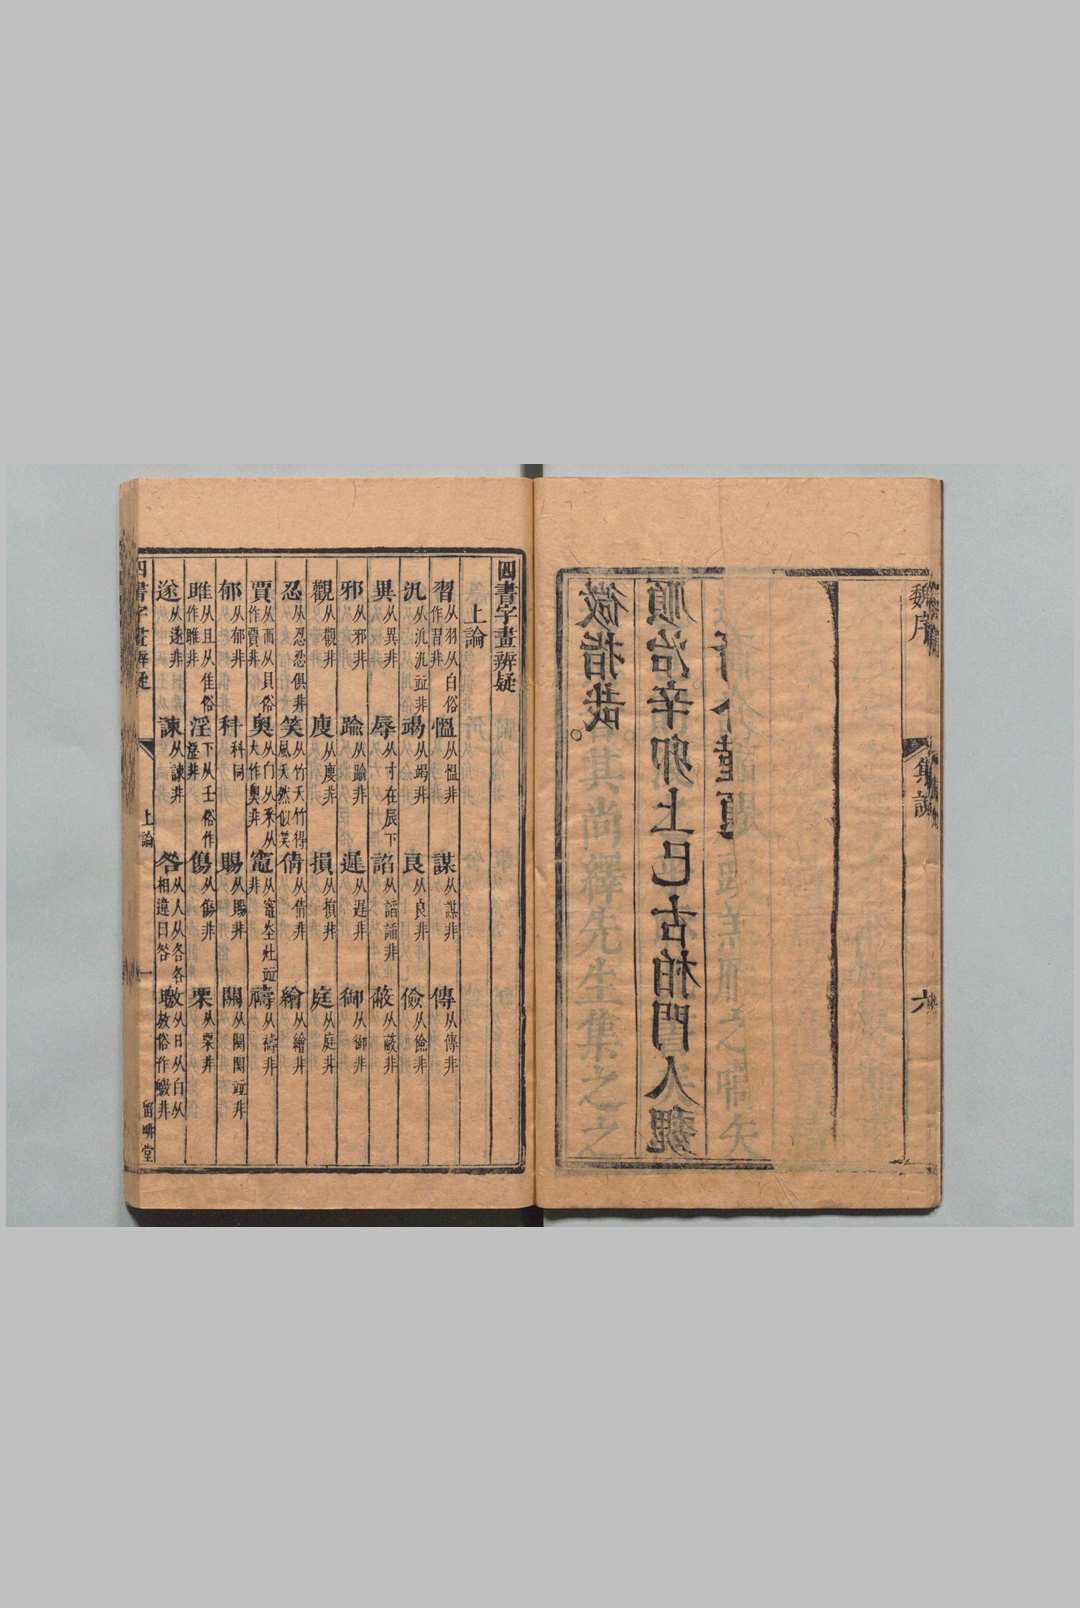 魏序
集說
六
微指哉。
順治辛卯上巳古柏門人魏
裔介謹題
四書字畫辨疑
上論
習从羽从白俗作習非 慍从慍非 謀从謀非 傳从傳非
汎从汎汎竝非 竭从竭非 良从良非 儉从儉非
異从異非 辱从寸在辰下 諂从謟謟非 蔽从蔽非
邪从邪非 踰从踰非 遲从遲非 御从御非
觀从觀非 廋从廋非 損从損非 庭从庭非
忍从忍忍俱非 笑从竹夭竹得風夭然似笑 倩从倩非 繪从繪非
賈从襾从貝俗作賈非 奧从白从釆从大作奧非 竈从竈灶竝非 禱从禱非
郁从郁非 科科同 賜从賜非 關从関関竝非
雎从且从隹俗作睢非 淫下从壬俗作滛非 傷从傷非 栗从栗非
遂从遂非 諫从諫非 咎从人从各各相違曰咎 皦从日从白从敫俗作皦非
四書字畫辨疑
上論
一
留畊堂